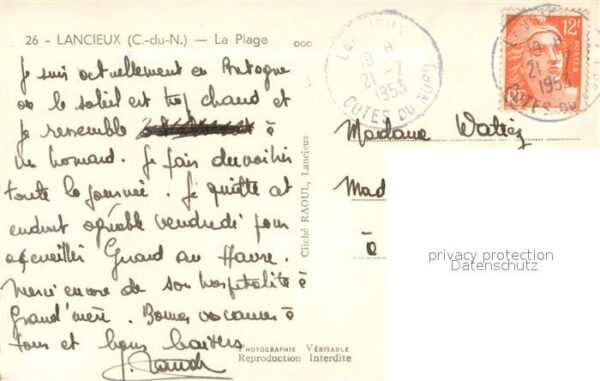 26 - LANCIEUX (C.-du-N.) — La Plage
Je suis actuellement en Bretagne
où le soleil est trop chaud et
je ressemble à
un homard. Je fais du voilier
toute la journée. Je quitte cet
endroit agréable vendredi pour
accueillir Gérard au Havre.
Merci encore de son hospitalité à
Grand'mère. Bonnes vacances à
tous et bons baisers
LANCIEUX
19 H
21 - 7
1953
COTES DU NORD
12F
POSTES
19 H
21 - 7
1953
COTES DU
Madame Watiez
Mad
à
Cliché RAOUL, Lancieux
PHOTOGRAPHIE VÉRITABLE
Reproduction Interdite
privacy protection
Datenschutz